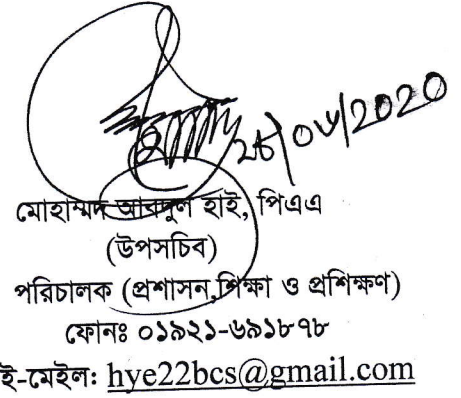 ২৪/০৮/2020
মোহাম্মদ আবদুল হাই, পিএএ
(উপসচিব)
পরিচালক (প্রশাসন,শিক্ষা ও প্রশিক্ষণ)
ফোনঃ ০১৯২১-৬৯১৮৭৮
ই-মেইল: hye22bcs@gmail.com